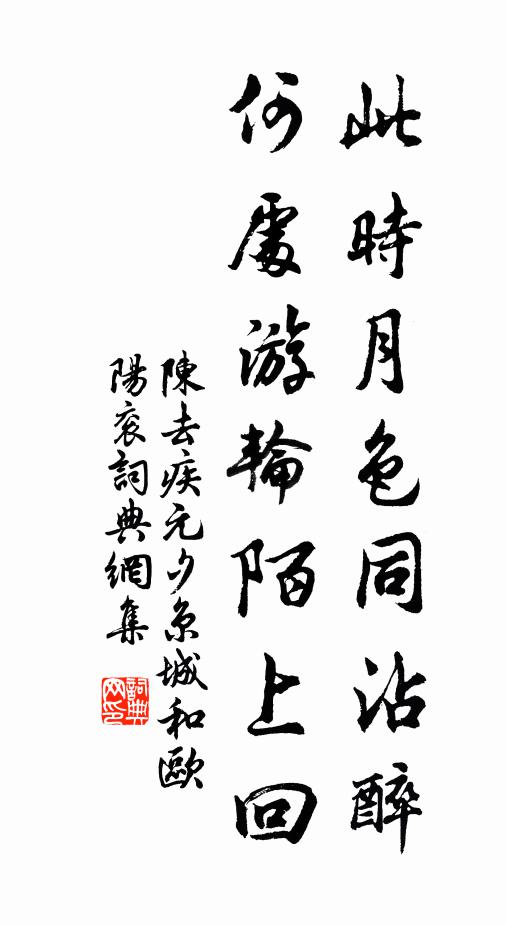 此時月色同沾醉
何處游輪陌上回
陳去疾元夕京城和歐
陽袞詞典網集
詞典網印